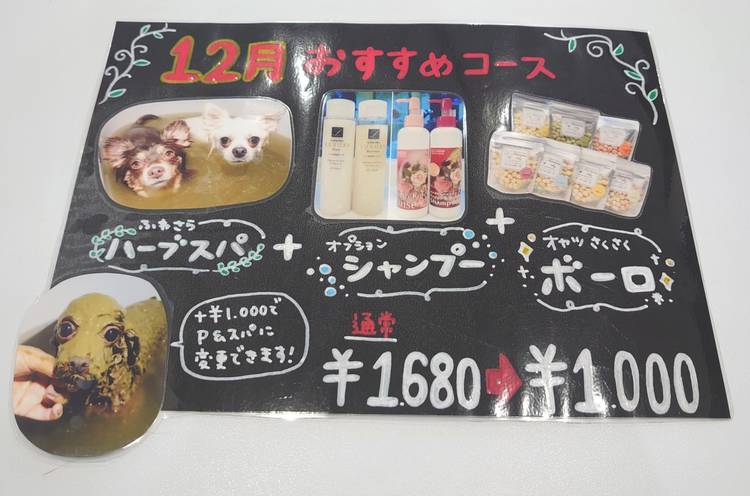 12月おすすめコース
ふわさら
ハーブスパ
+
オプション
シャンプー
+
オヤツ さくさく
ボーロ
+¥1.000で
P&スパに
変更できます!
通常
¥1.680➡¥1.000